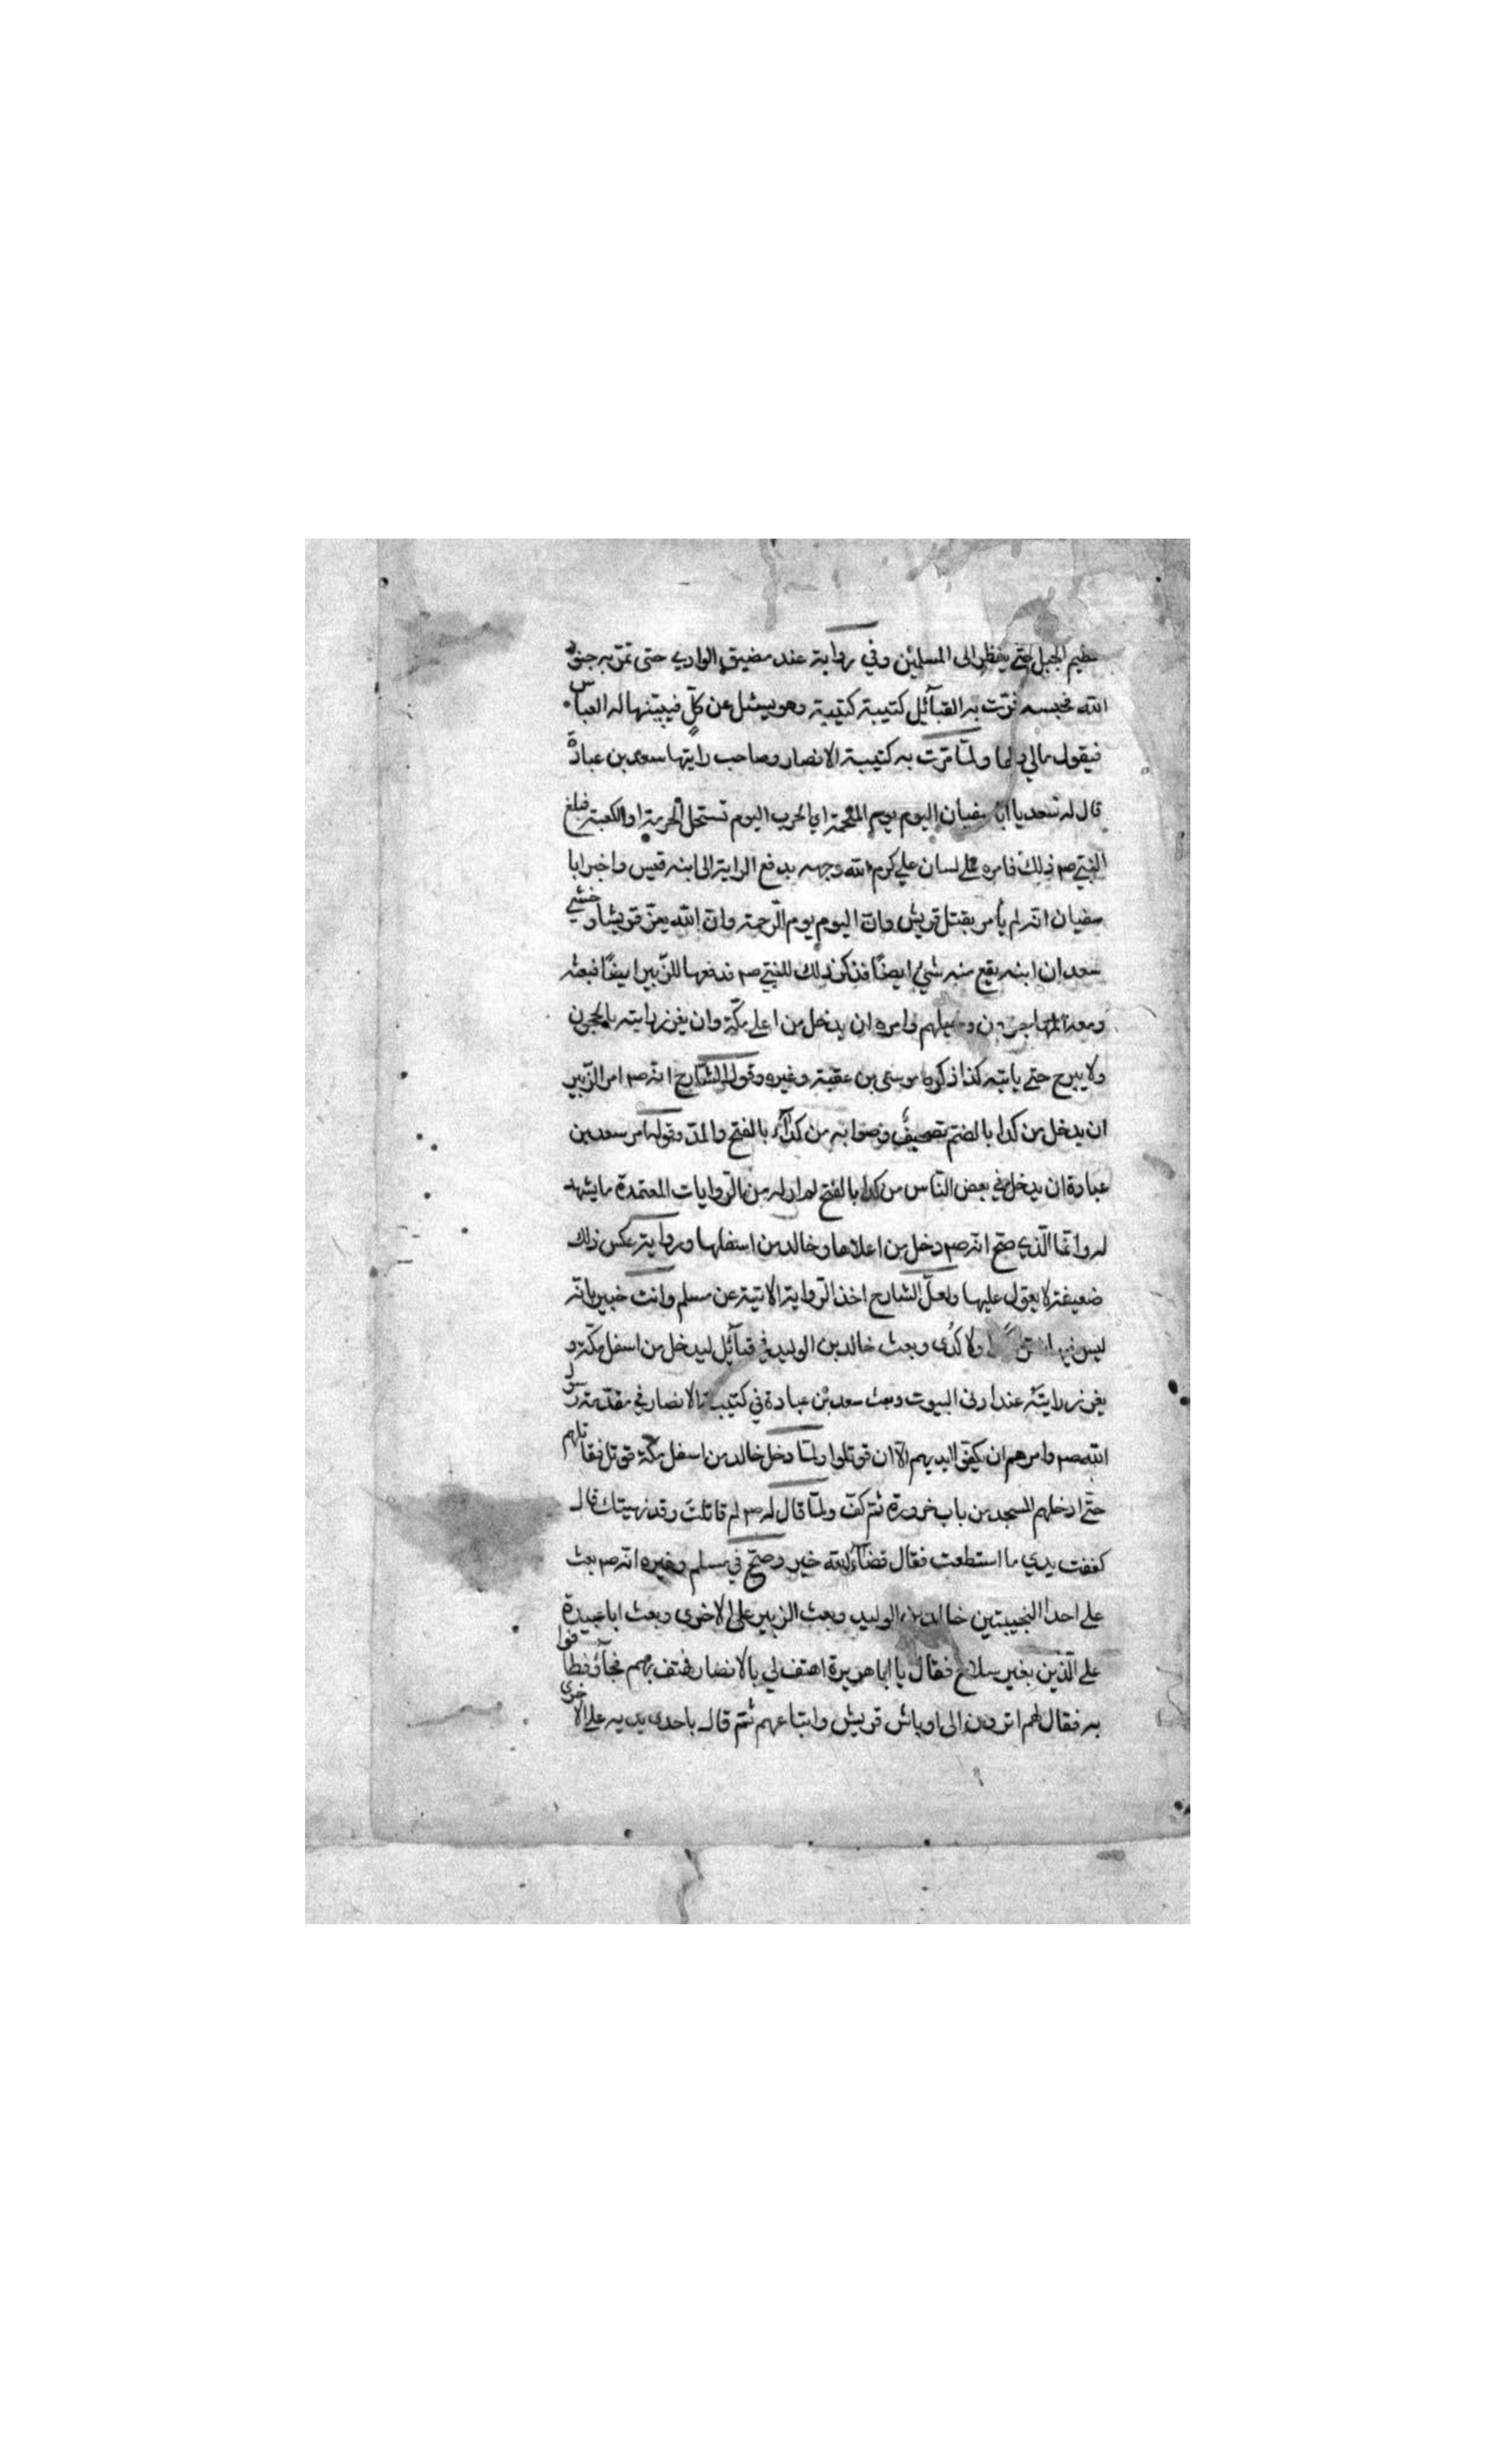 حطيم الجبل حتى ينظر الى المسلمين وفي رواية عند مضيق الوادي حتى تمر به جنود
الله فحبسه فمرّت به القبآئل كتيبة كتيبة وهو يسئل عن كلّ فيبيّنها له العباس
فيقول مالي ولها ولمّا مرّت به كتيبة الانصار وصاحب رايتها سعد بن عبادة
قال له سعد يا ابا سفيان اليوم يوم الملحمة اي الحرب اليوم تستحل الحرمة او الكعبة فبلغ
النبي صم ذلك فامره على لسان علي كرم الله وجهه بدفع الراية الى ابنه قيس واخبر ابا
سفيان انّه لم يأمر بقتل قريش وانّ اليوم يوم الرّحمة وانّ الله يعزّ قريشا وخشي
سعد ان ابنه يقع منه شيئ ايضًا فذكر ذلك للنبي صم فدفعها للزّبير ايضًا فبعثه
ومعه المهاجرون وخيلهم وامره ان يدخل من اعلى مكّة وان يغرز رايته بالحجون
ولا يبرح حتى ياتيه كذا ذكره موسى بن عقبة وغيره وقول الشارح انّه صم امر الزّبير
ان يدخل من كدا بالضم تصحيفٌ وصوابه من كدآء بالفتح والمدّ وقوله امر سعد بن
عبادة ان يدخل في بعض النّاس من كدا بالفتح لم ار له من الرّوايات المعتمدة ما يشهد
له وانّما الّذي صحّ انّه صم دخل من اعلاها وخالد من اسفلها ورواية عكس ذلك
ضعيفة لا يعوّل عليها ولعلّ الشارح اخذ الرّواية الاتية عن مسلم وانت خبير بانّه
ليس فيها ولا كُدى وبعث خالد بن الوليد في قبآئل ليدخل من اسفل مكّة و
يغرز رايته عند ادنى البيوت وبعث سعد بن عبادة في كتيبة الانصار في مقدّمة رسول
الله صم وامرهم ان يكفّوا ايديهم الّا ان قوتلوا ولمّا دخل خالد من اسفل مكّة قوتل فقاتلهم
حتّى ادخلهم المسجد من باب خرورة ثمّ كفّ ولمّا قال له صم لم قاتلت وقد نهيتك قال
كففت يدي ما استطعت فقال قضآء الله خير وصحّ في مسلم وغيره انّه صم بعث
على احدا النجيبتين خالد بن الوليد وبعث الزبير على الاخرى وبعث ابا عبيدة
على الّذين بغير سلاح فقال يا ابا هريرة اهتف لي بالانصار فهتف بهم فجآؤ فطافوا
به فقال لهم اترون الى اوباش قريش واتباعهم ثمّ قال باحدى يديه على الاخرى